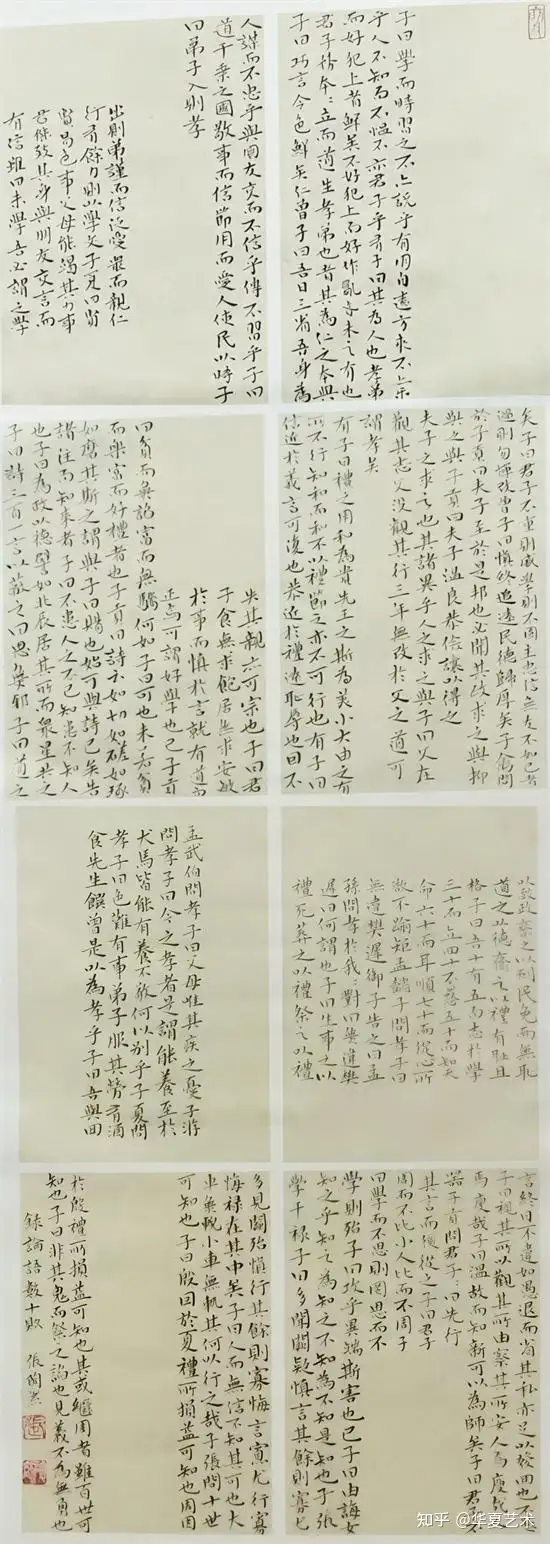 子曰學而時習之不亦說乎有朋自遠方來不亦樂
乎人不知而不慍不亦君子乎有子曰其為人也孝弟
而好犯上者鮮矣不好犯上而好作亂者未之有也
君子務本〻立而道生孝弟也者其為仁之本與
子曰巧言令色鮮矣仁曾子曰吾日三省吾身為
人謀而不忠乎與朋友交而不信乎傳不習乎子曰
道千乘之國敬事而信節用而愛人使民以時子
曰弟子入則孝
出則弟謹而信泛愛眾而親仁
行有餘力則以學文子夏曰賢
賢易色事父母能竭其力事
君能致其身與朋友交言而
有信雖曰未學吾必謂之學
矣子曰君子不重則威學則不固主忠信無友不如己者
過則勿憚改曾子曰慎終追遠民德歸厚矣子禽問
於子貢曰夫子至於是邦也必聞其政求之與抑
與之與子貢曰夫子溫良恭儉讓以得之
夫子之求之也其諸異乎人之求之與子曰父在
觀其志父沒觀其行三年無改於父之道可
謂孝矣
有子曰禮之用和為貴先王之斯為美小大由之有
所不行知和而和不以禮節之亦不可行也有子曰
信近於義言可復也恭近於禮遠恥辱也因不
失其親亦可宗也子曰君
子食無求飽居無求安敏
於事而慎於言就有道而
正焉可謂好學也已子貢
曰貧而無諂富而無驕何如子曰可也未若貧
而樂富而好禮者也子貢曰詩云如切如磋如琢
如磨其斯之謂與子曰賜也始可與詩已矣告
諸往而知來者子曰不患人之不己知患不知人
也子曰為政以德譬如北辰居其所而眾星共之
子曰詩三百一言以蔽之曰思無邪子曰道之
以政齊之以刑民免而無恥
道之以德齊之以禮有恥且
格子曰吾十有五而志於學
三十而立四十不惑五十而知天
命六十而耳順七十而從心所
欲不踰矩孟懿子問孝子曰
無違樊遲御子告之曰孟
孫問孝於我〻對曰無違樊
遲曰何謂也子曰生事之以
禮死葬之以禮祭之以禮
孟武伯問孝子曰父母唯其疾之憂子游
問孝子曰今之孝者是謂能養至於
犬馬皆能有養不敬何以別乎子夏問
孝子曰色難有事弟子服其勞有酒
食先生饌曾是以為孝乎子曰吾與回
言終日不違如愚退而省其私亦足以發回也不愚
子曰視其所以觀其所由察其所安人焉廋哉
焉廋哉子曰溫故而知新可以為師矣子曰君子不
器子貢問君子子曰先行
其言而後從之子曰君子
周而不比小人比而不周子
曰學而不思則罔思而不
學則殆子曰攻乎異端斯害也已子曰由誨女
知之乎知之為知之不知為不知是知也子張
學干祿子曰多聞闕疑慎言其餘則寡尤
多見闕殆慎行其餘則寡悔言寡尤行寡
悔祿在其中矣子曰人而無信不知其可也大
車無輗小車無軏其何以行之哉子張問十世
可知也子曰殷因於夏禮所損益可知也周因
於殷禮所損益可知也其或繼周者雖百世可
知也子曰非其鬼而祭之諂也見義不為無勇也
錄論語數十則 張
知乎 @华夏艺术